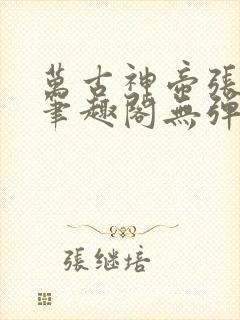 萬古神帝張
筆趣閣無彈
張继培